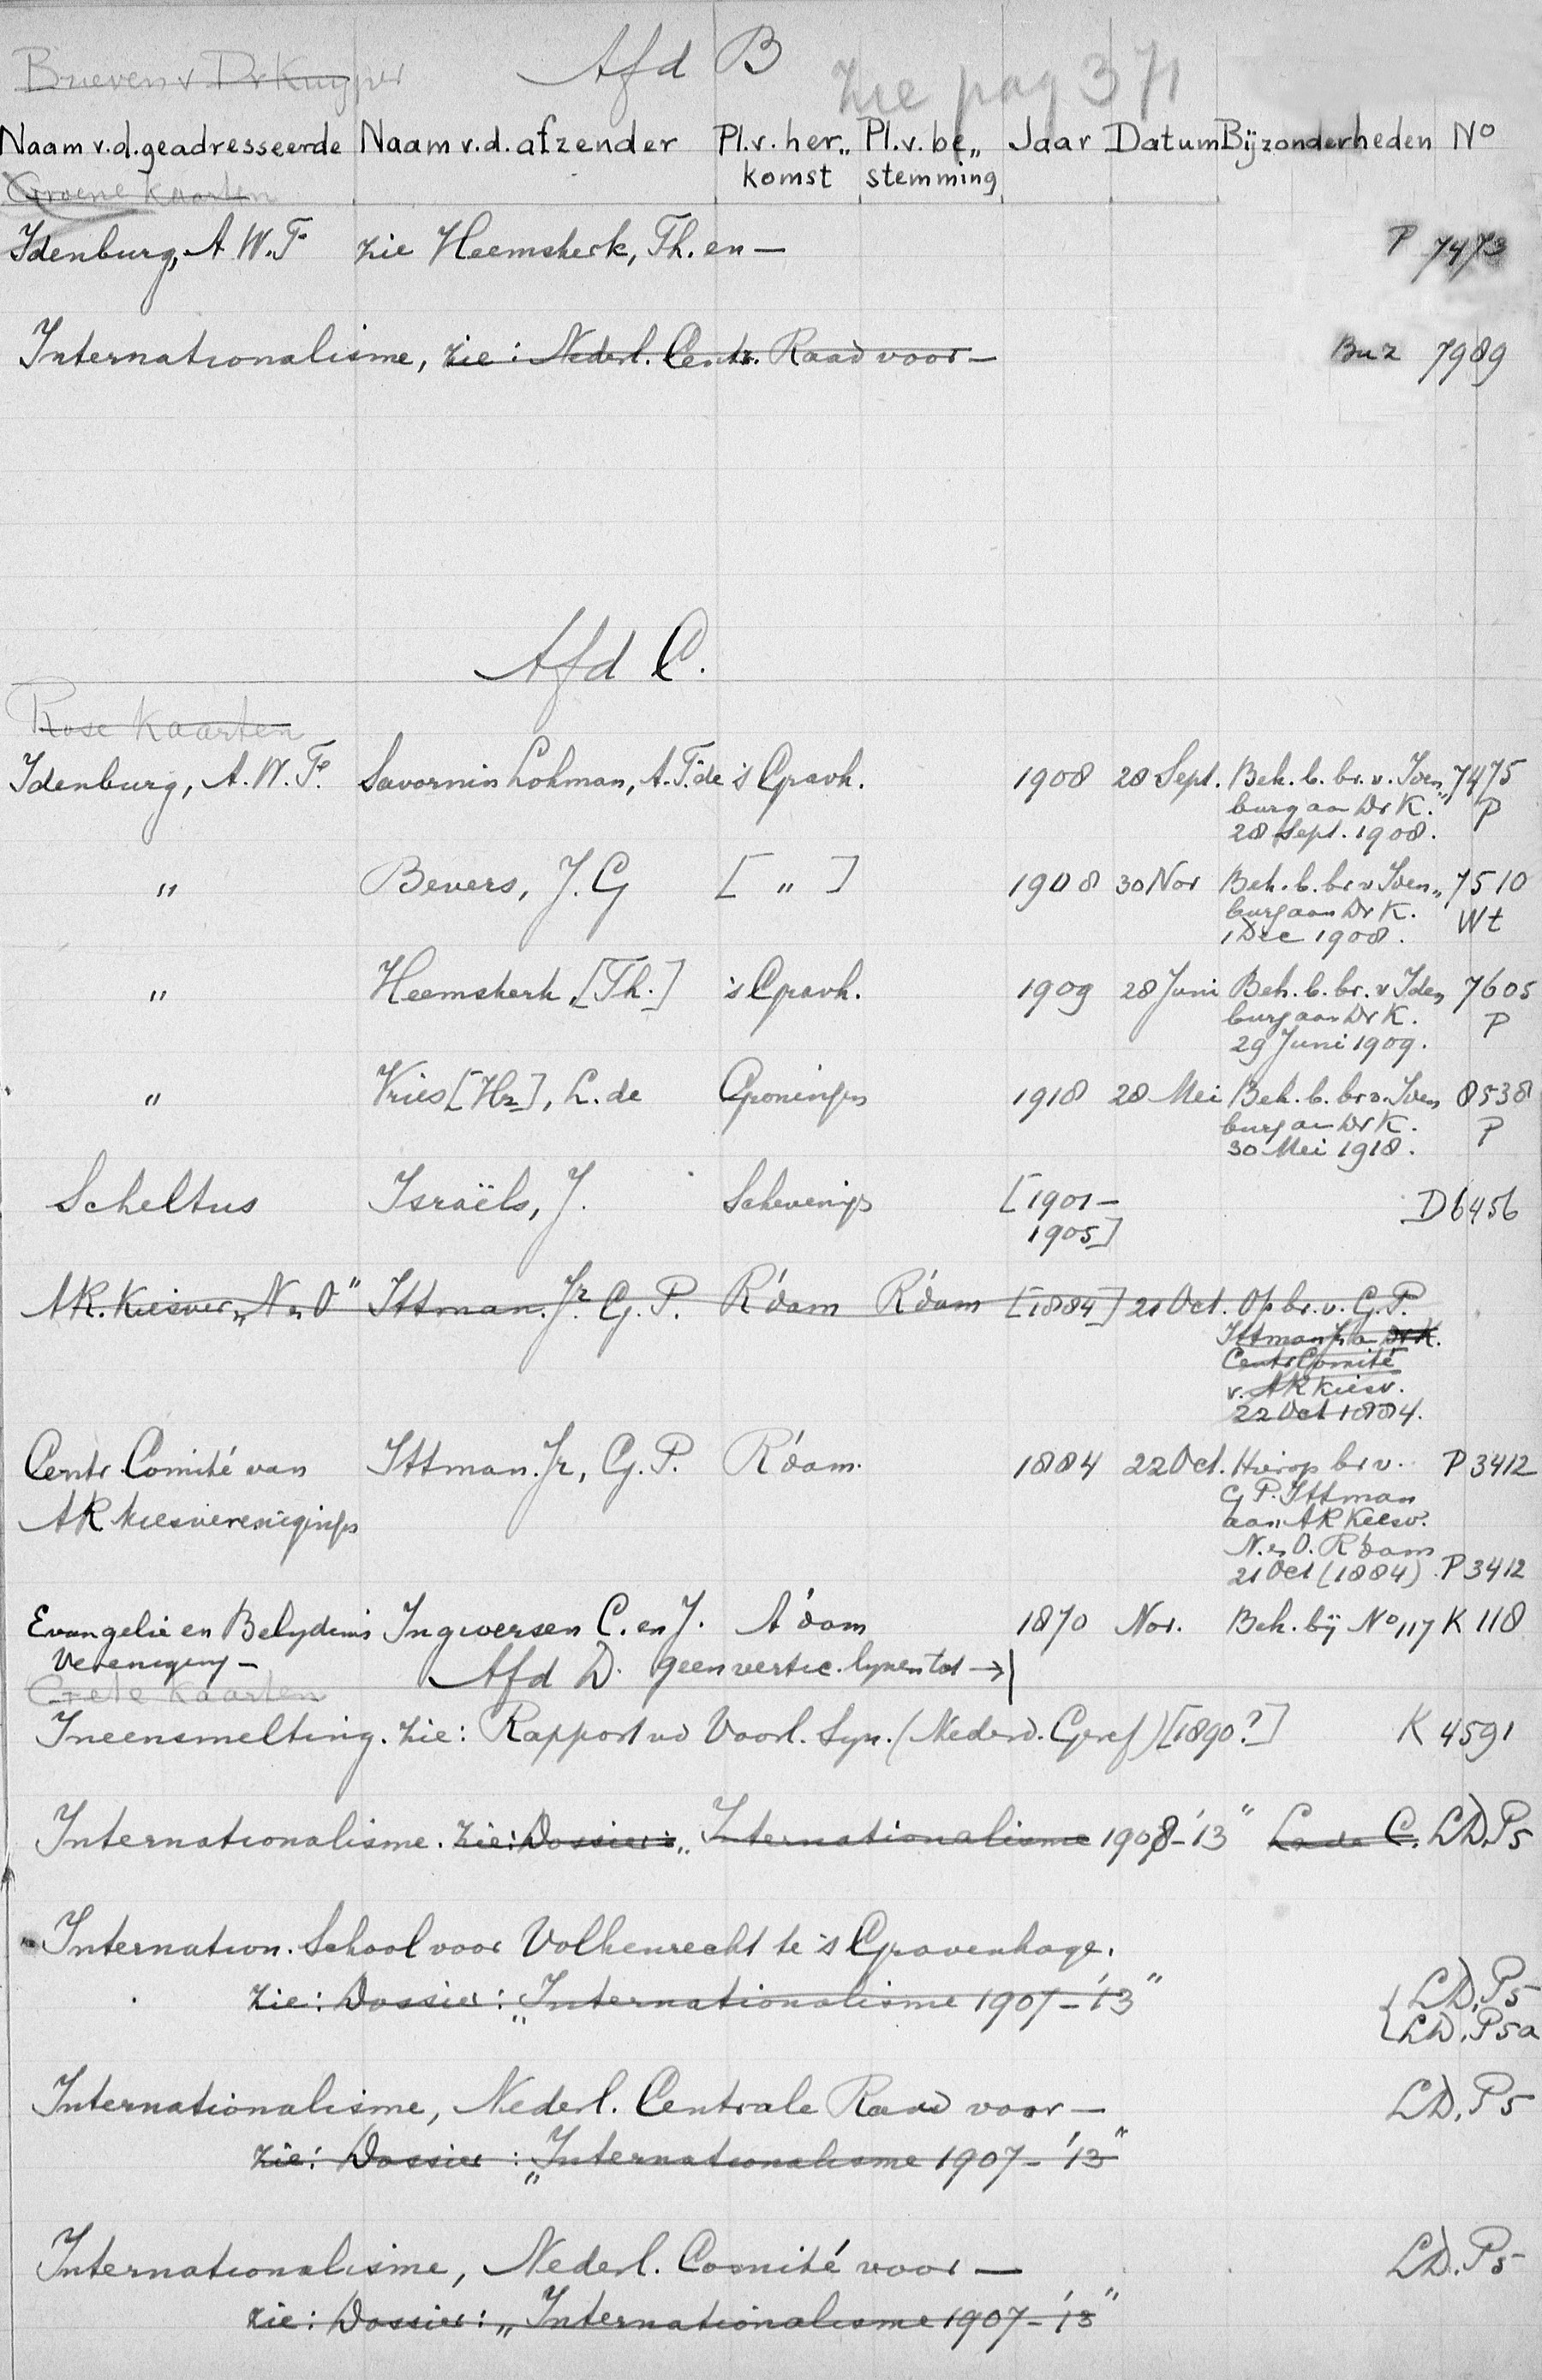 Brieven v. Dr Kuyper Afd B
Zie pag 371
Naam v.d. geadresseerde Naam v.d. afzender Pl.v. her„ Pl.v. be„ Jaar Datum Bijzonderheden No
komst stemming
Groene Kaarten
Idenburg, A.W.F. zie Heemskerk, Th. en — P 7473
Internationalisme, zie: Nederl. Centr. Raad voor — Buz 7989
Afd C.
Rose Kaarten
Idenburg, A.W.F. Savornin Lohman, A.F. de 's Gravh. 1908 28 Sept. Beh. b. br. v. Iden„ 7475
burg aan Dr K. P
28 Sept. 1908.
" Bevers, J. G [ " ] 1908 30 Nov Beh. b. br v Iden„ 7510
burg aan Dr K. Wt
1 Dec 1908.
" Heemskerk, [Th.] 's Gravh. 1909 28 Juni Beh. b. br. v Iden„ 7605
burg aan Dr K. P
29 Juni 1909.
" Vries [Hz], L. de Groningen 1918 28 Mei Beh. b. br v. Iden„ 8538
burg aan Dr K. P
30 Mei 1918.
Scheltus Israëls, J. Schevening [1901 — D6456
1905]
AR. Kiesver. „N en O" Ittman. Jr. G. P. R'dam R'dam [1884] 21 Oct. Op br. v. G.P.
Ittman Jr a Dr K.
Centr Comité
v. AR Kiesv.
22 Oct 1884.
Centr. Comité van Ittman. Jr, G. P. R'dam. 1884 22 Oct. Hierop br v. P 3412
G P. Ittman
AR Kiesverenigings aan AR Kiesv.
N. en O. R'dam
21 Oct (1884) P 3412
Evangelie en Belydenis Ingwersen C. en J. A'dam 1870 Nov. Beh. bij No 117 K 118
Vereniging — Afd D. geen vertic. lynen tot →|
Gele Kaarten
Ineensmelting. zie: Rapport vd Voorl. Syn. (Nederd. Geref) [1890?] K 4591
Internationalisme. zie: Dossier: „Internationalisme 1908-'13" Lade C. LD. P5
Internation. School voor Volkenrecht te 's Gravenhage.
zie: Dossier: „Internationalisme 1907-'13" { LD. P5
{ LD. P5a
Internationalisme, Nederl. Centrale Raad voor — LD. P5
zie: Dossier: „Internationalisme 1907-'13"
Internationalisme, Nederl. Comité voor — LD. P5
zie: Dossier: „Internationalisme 1907-'13"